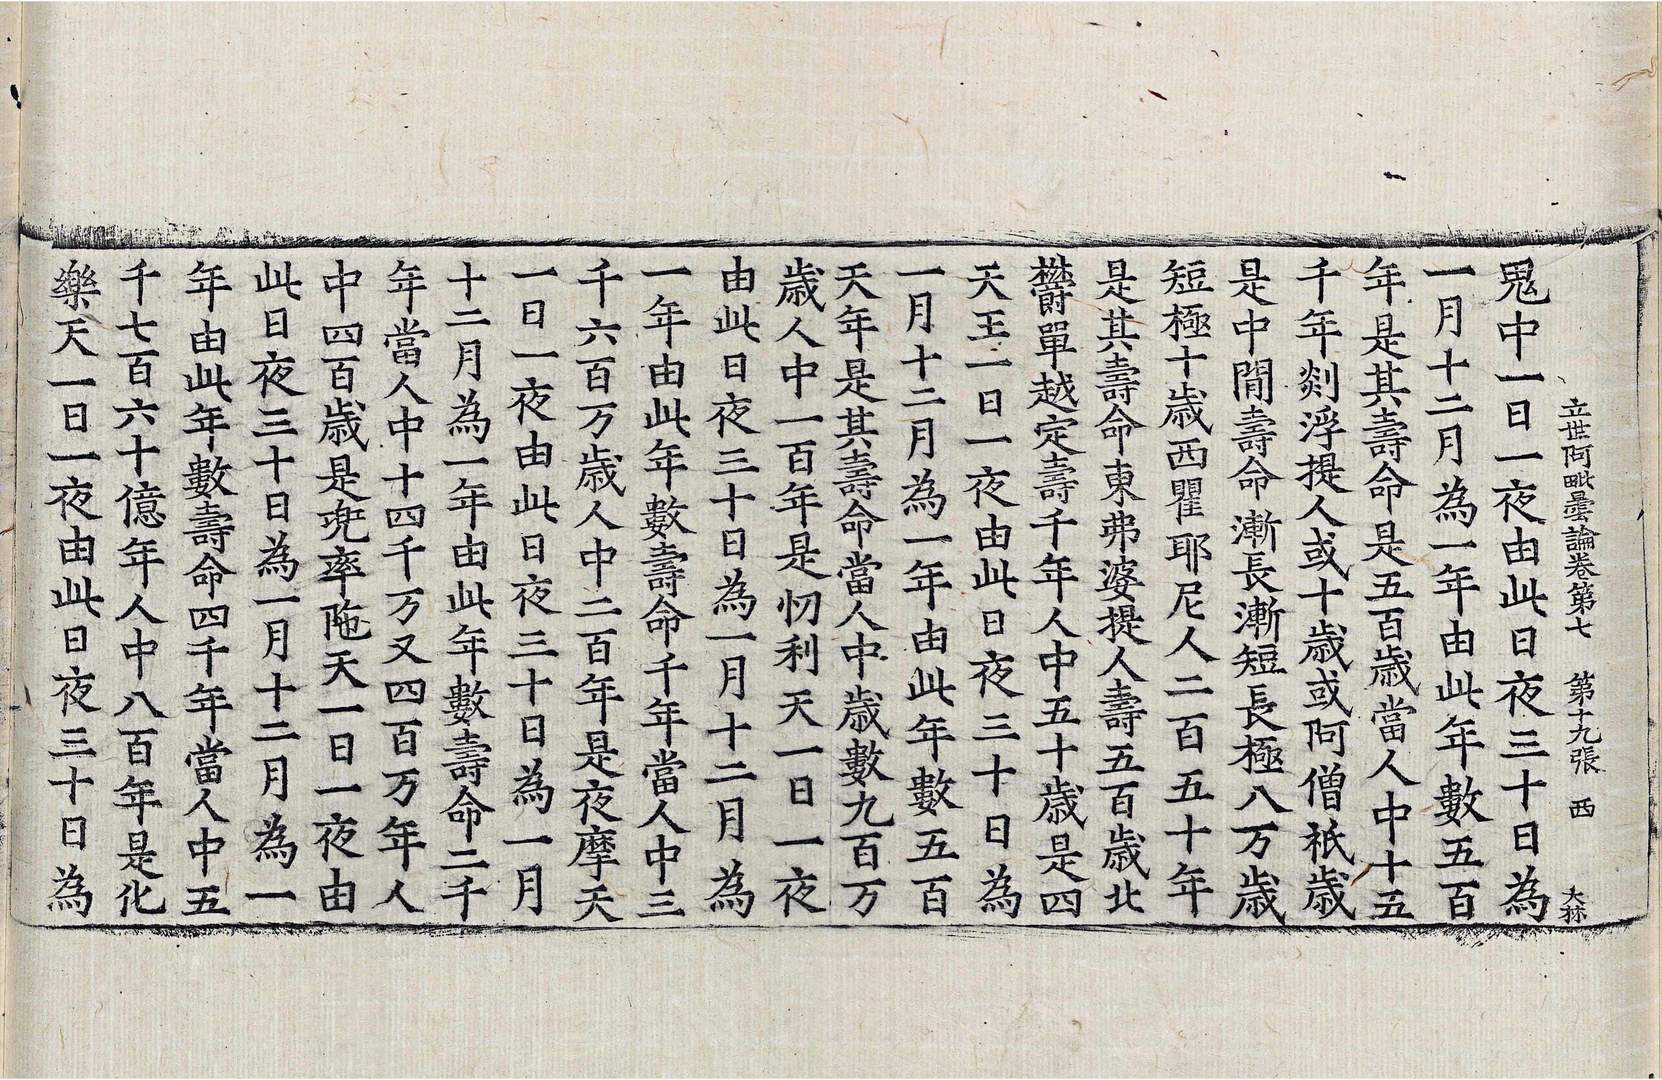 立世阿毗曇論卷第七 第十九張 西 大林
鬼中一日一夜由此日夜三十日為
一月十二月為一年由此年數五百
年是其壽命是五百歲當人中十五
千年剡浮提人或十歲或阿僧祇歲
是中閒壽命漸長漸短長極八万歲
短極十歲西瞿耶尼人二百五十年
是其壽命東弗婆提人壽五百歲北
欝單越定壽千年人中五十歲是四
天王一日一夜由此日夜三十日為
一月十二月為一年由此年數五百
天年是其壽命當人中歲數九百万
歲人中一百年是忉利天一日一夜
由此日夜三十日為一月十二月為
一年由此年數壽命千年當人中三
千六百万歲人中二百年是夜摩天
一日一夜由此日夜三十日為一月
十二月為一年由此年數壽命二千
年當人中十四千万又四百万年人
中四百歲是兜率陁天一日一夜由
此日夜三十日為一月十二月為一
年由此年數壽命四千年當人中五
千七百六十億年人中八百年是化
樂天一日一夜由此日夜三十日為